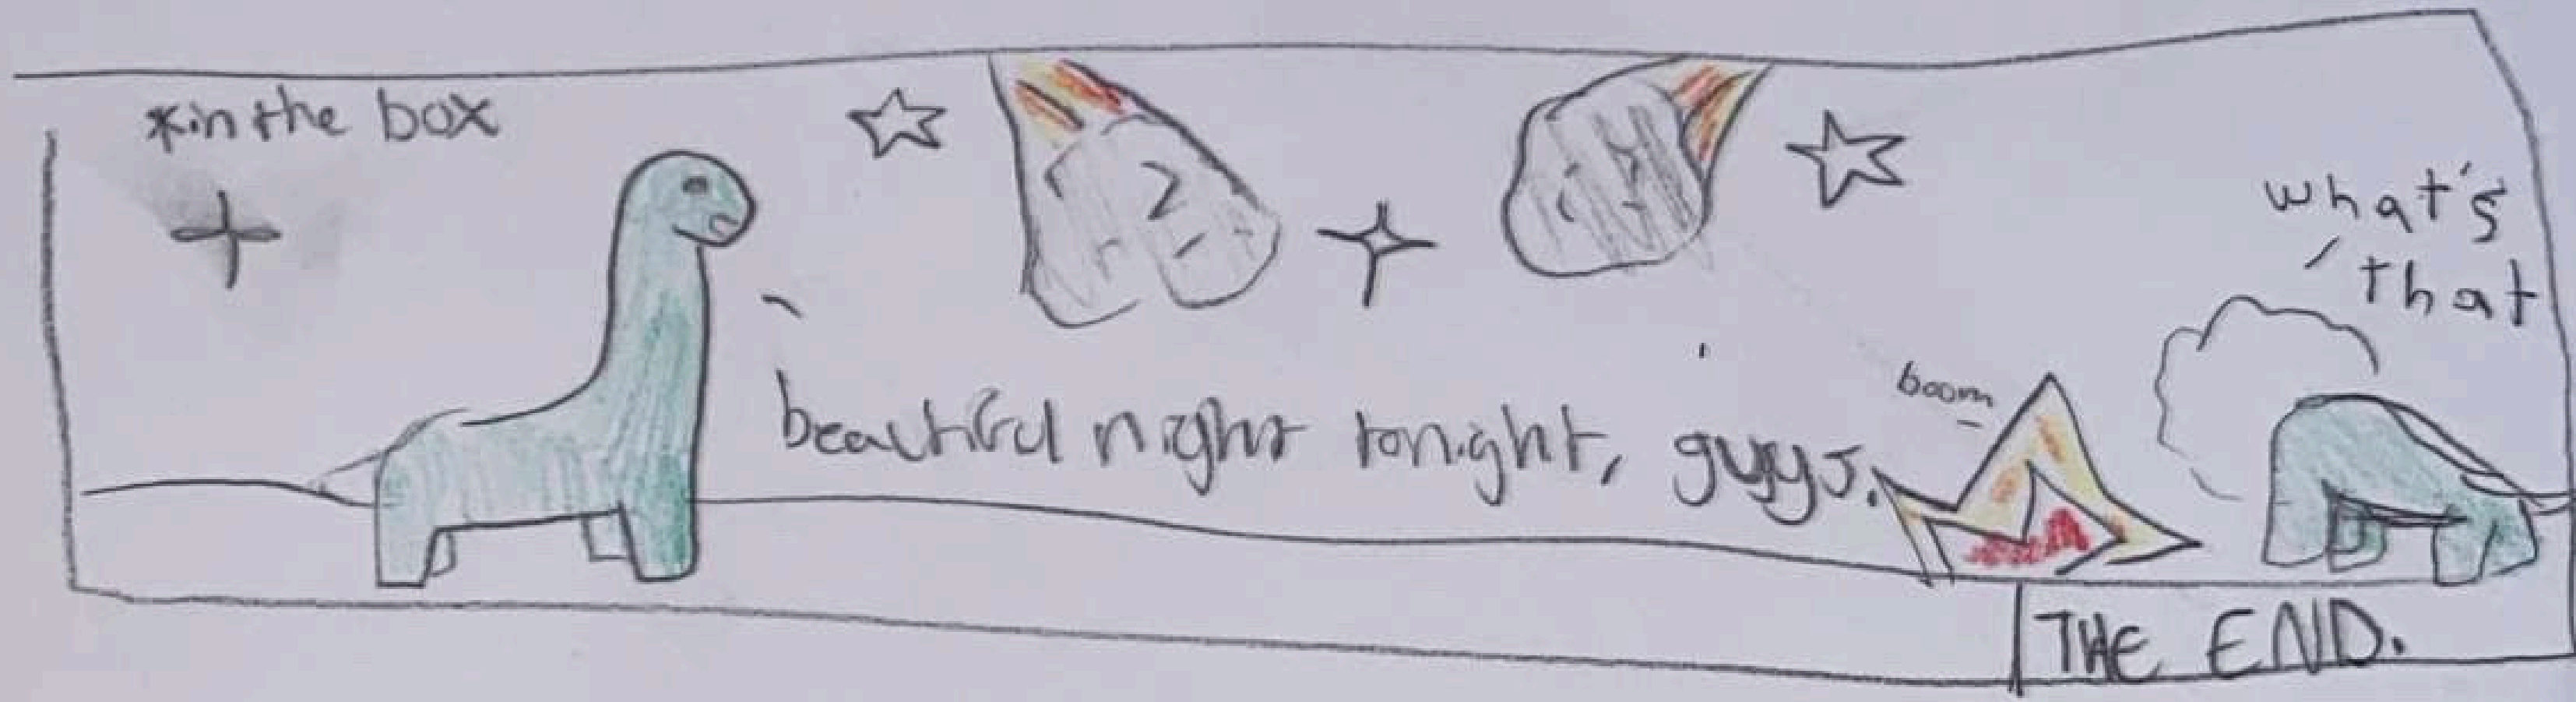 *in the box
beautiful night tonight, guys.
boom
what's
that
THE END.